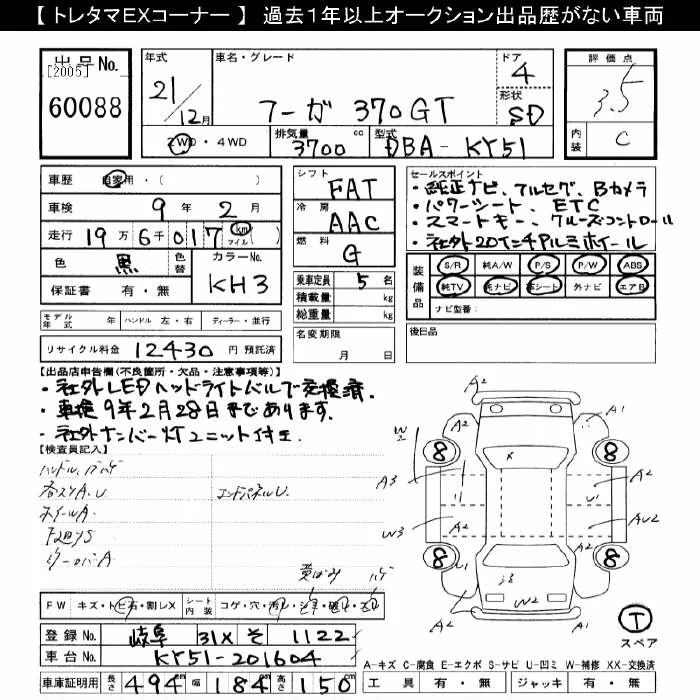 【 トレタマEXコーナー 】 過去１年以上オークション出品歴がない車両
出品No.
[2005]
60088
年式
21/12月
車名・グレード
フーガ 370GT
ドア
4
形状
SD
評価点
3.5
内装
C
2WD・4WD
排気量
3700 cc
型式
DBA-KY51
車歴 自家用・( )
車検 9年 2月
走行 19万6千017 km マイル ( )
色 黒
色替
カラーNo.
KH3
保証書 有・無
シフト
FAT
冷房
AAC
燃料
G
乗車定員 5 名
積載量 kg
総重量 kg
セールスポイント
・純正ナビ、フルセグ、Bカメラ
・パワーシート、ETC
・スマートキー、クルーズコントロール
・社外20インチアルミホイール
装備品
S/R 純A/W P/S P/W ABS
純TV 純ナビ 革シート 外ナビ エアB
ナビ型番:
モデル年式 年 ハンドル 左・右 ディーラー・並行
名変期限
月 日
後日品
リサイクル料金 12430 円 預託済
【出品店申告欄(不良箇所・欠品・注意事項等)】
・社外LEDヘッドライトバルブ交換済.
・車検9年2月28日まであります.
・社外ナンバー灯ユニット付き
【検査員記入】
ハンドル、
ホイールA
エンドパネルU.
黄ばみ
A2
A2
A1
W2
8
8
A3
A2
U1
W3
A2
A2
AU2
8
8
X
W2
A2
A1
FW キズ・トビ石・割レX
シート内装 コゲ・穴・汚レ・シミ・破レ・スレ
登録No. 岐阜 31X そ 1122
車台No. KY51-201604
車庫証明用 長さ 494 cm 幅 184 cm 高さ 150 cm
T
スペア
A-キズ C-腐食 E-エクボ S-サビ U-凹ミ W-補修 XX-交換済
工具 有・無 ジャッキ 有・無